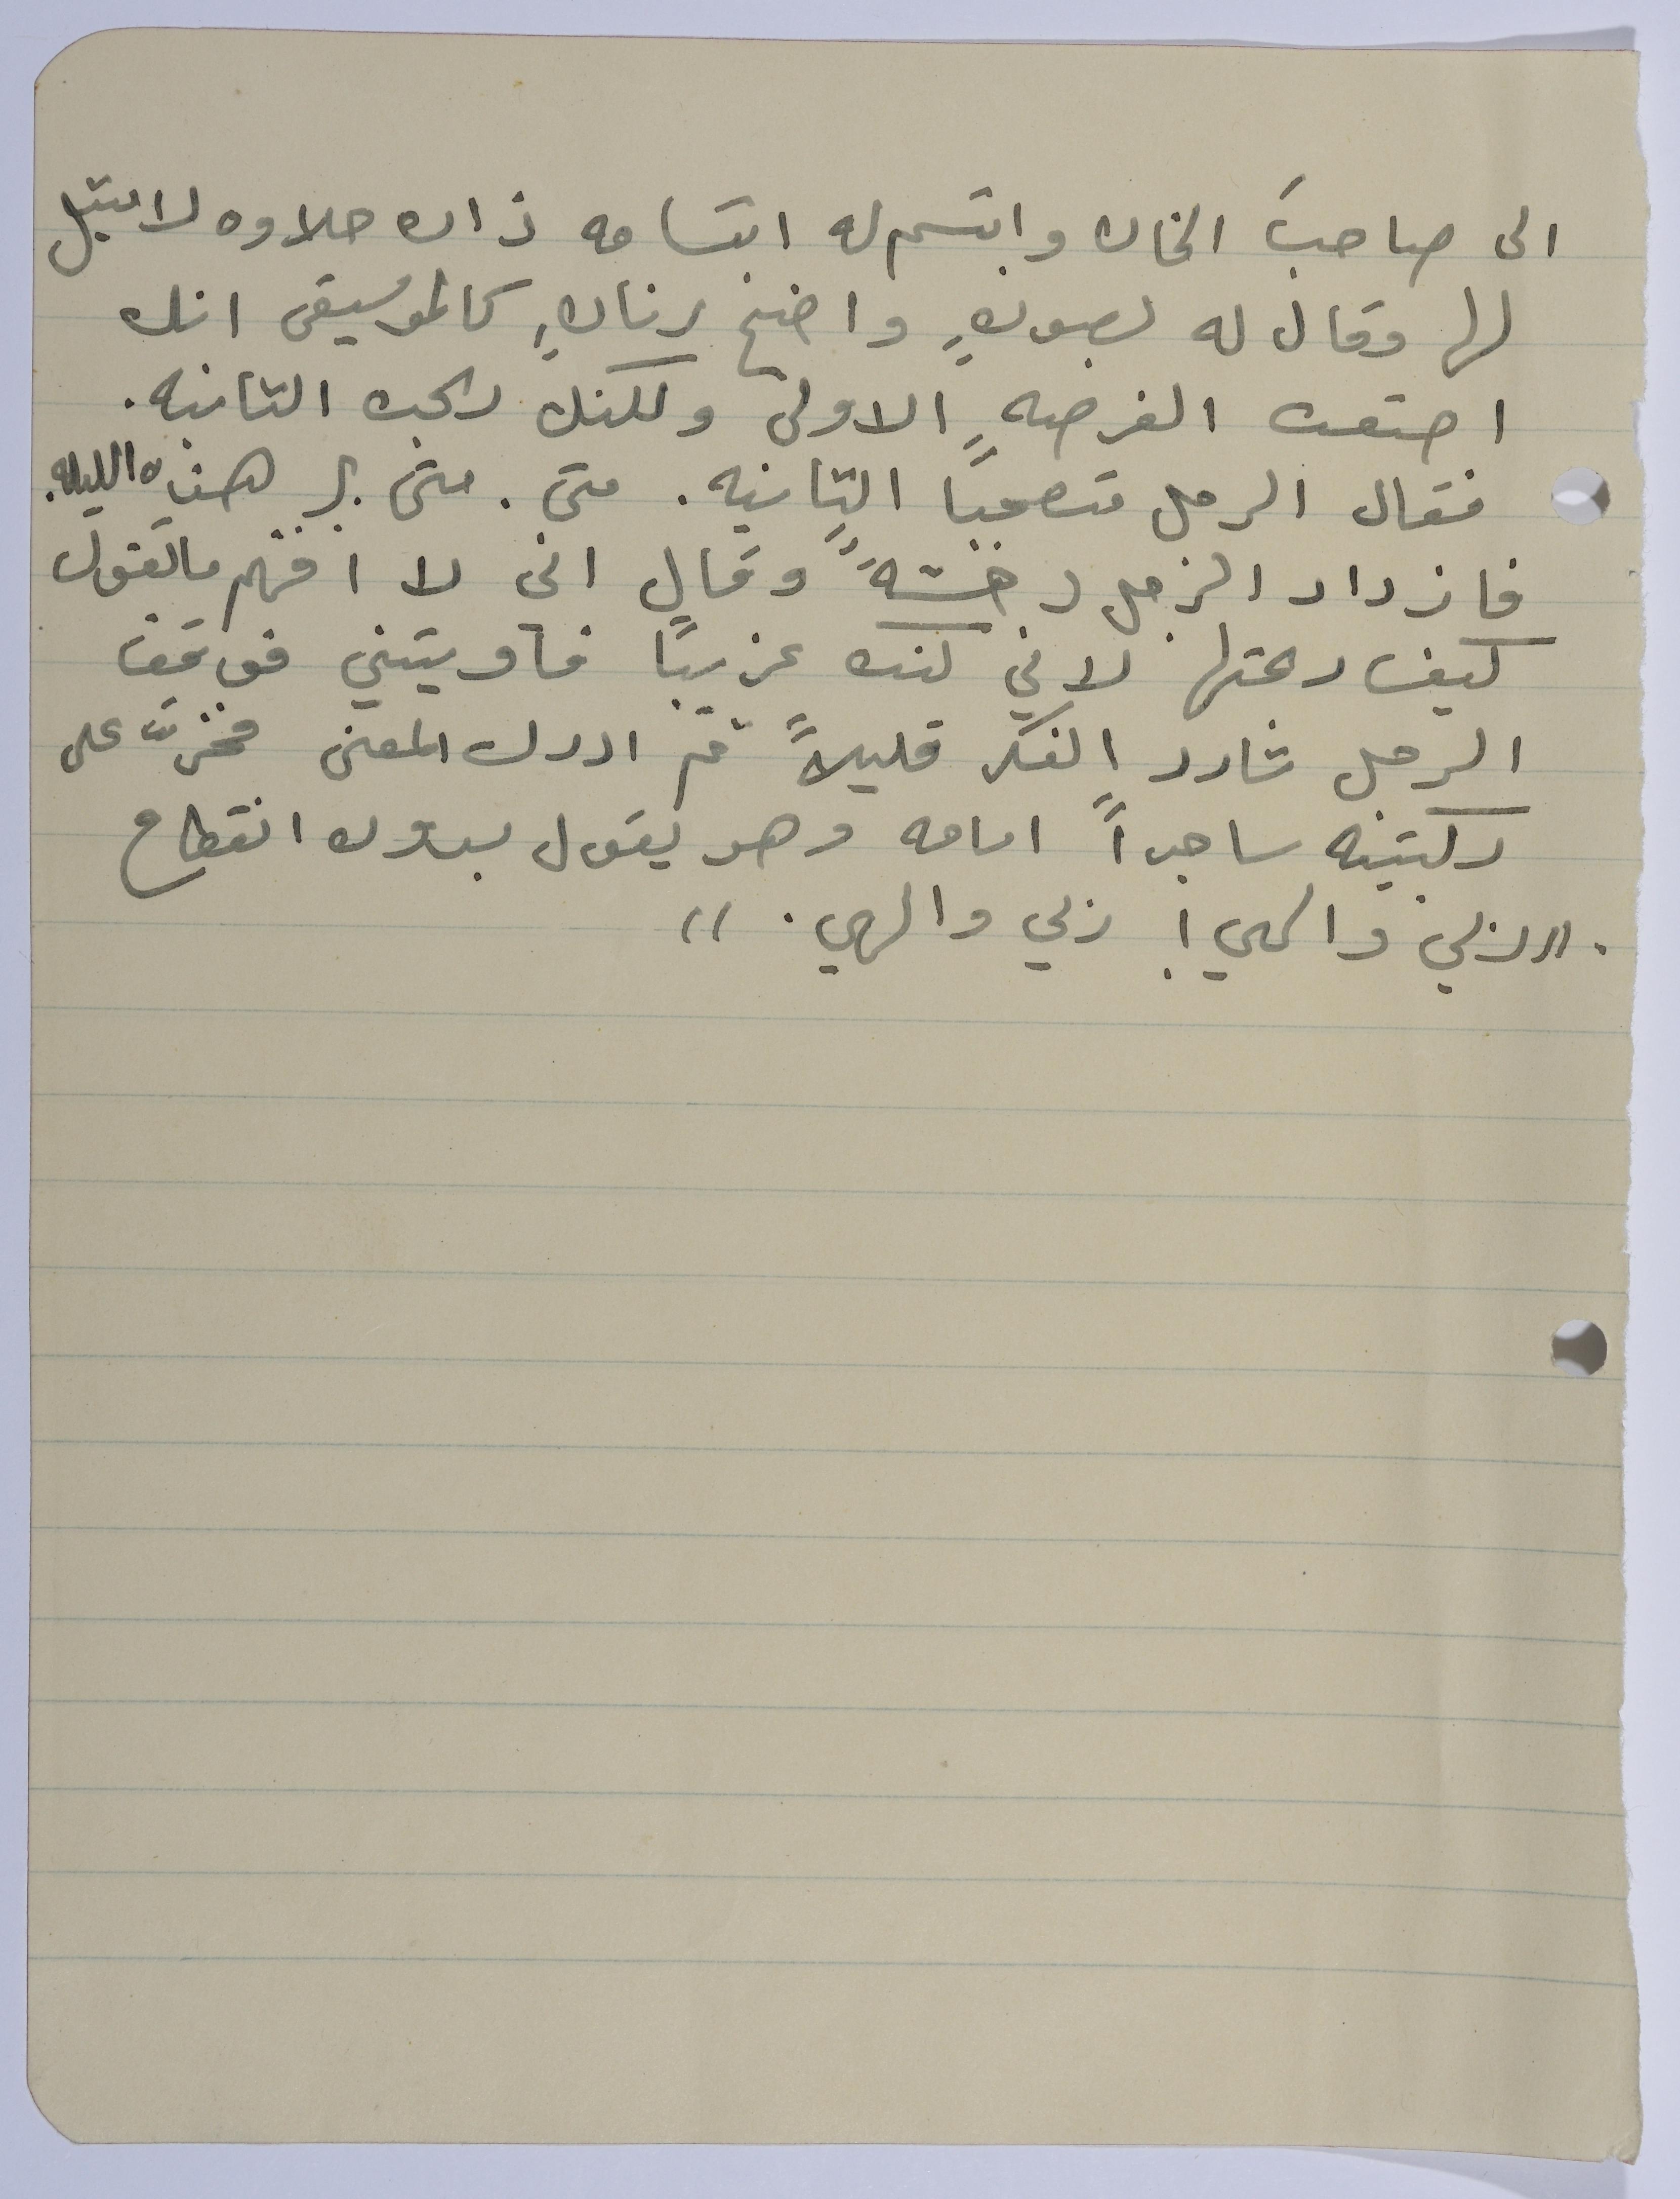 الى صاحب الخان وابتسم له ابتسامه ذات حلاوه لا مثيل
لها وقال له بصوتٍ واضح رنانٍ كالموسيقى انك
اضعت الفرصه الاولى ولكنك ربحت الثانيه.
فقال الرجل متعجباً الثانيه. متى. متى؟ هذه الليله.
فازداد الرجل دهشةً وقال اني لا افهم ما تقول
كيف ربحتها لاني كنت غريباً فآويتني فوقف
الرجل شارد الفكر قليلاً ثم ادرك المعنى فخرّ على
ركبتيه ساجداً امامه وهو يقول بدون انقطاع
. "ربي والهي! ربي والهي. "